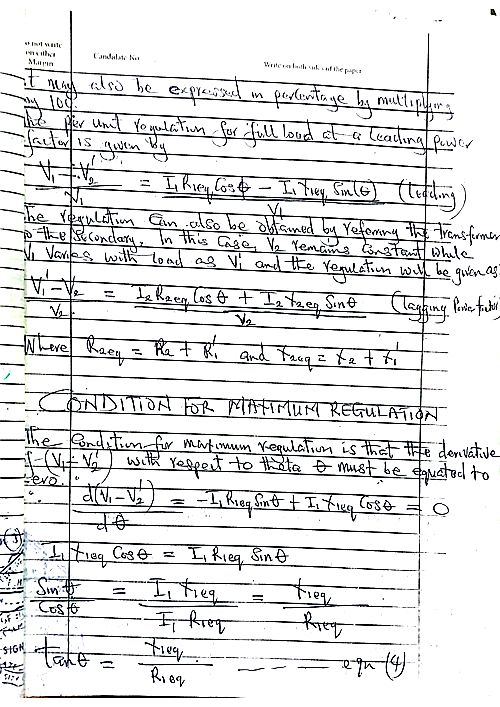 o not write
on either
Margin
Candidate No
Write on both sides of the paper
It may also be expressed in percentage by multiplying
by 100
The per unit regulation for full load at a leading power
factor is given by
V₁ - V₂' / V₁ = I₁R₁eq Cosθ - I₁X₁eq Sin(θ) / V₁ (leading)
The regulation can also be obtained by referring the transformer
to the secondary. In this case, V₂ remains constant while
V₁ varies with load as V₁' and the regulation will be given as
V₁' - V₂ / V₂ = I₂R₂eq Cosθ + I₂X₂eq Sinθ / V₂ (lagging Power factor)
Where R₂eq = R₂ + R₁' and X₂eq = X₂ + X₁'
CONDITION FOR MAXIMUM REGULATION
The condition for maximum regulation is that the derivative
of (V₁ - V₂') with respect to theta θ must be equated to
zero.
∴ d(V₁ - V₂') / dθ = -I₁R₁eq Sinθ + I₁X₁eq Cosθ = 0
I₁X₁eq Cosθ = I₁R₁eq Sinθ
Sinθ / Cosθ = I₁X₁eq / I₁R₁eq = X₁eq / R₁eq
tanθ = X₁eq / R₁eq — — — eqn (4)